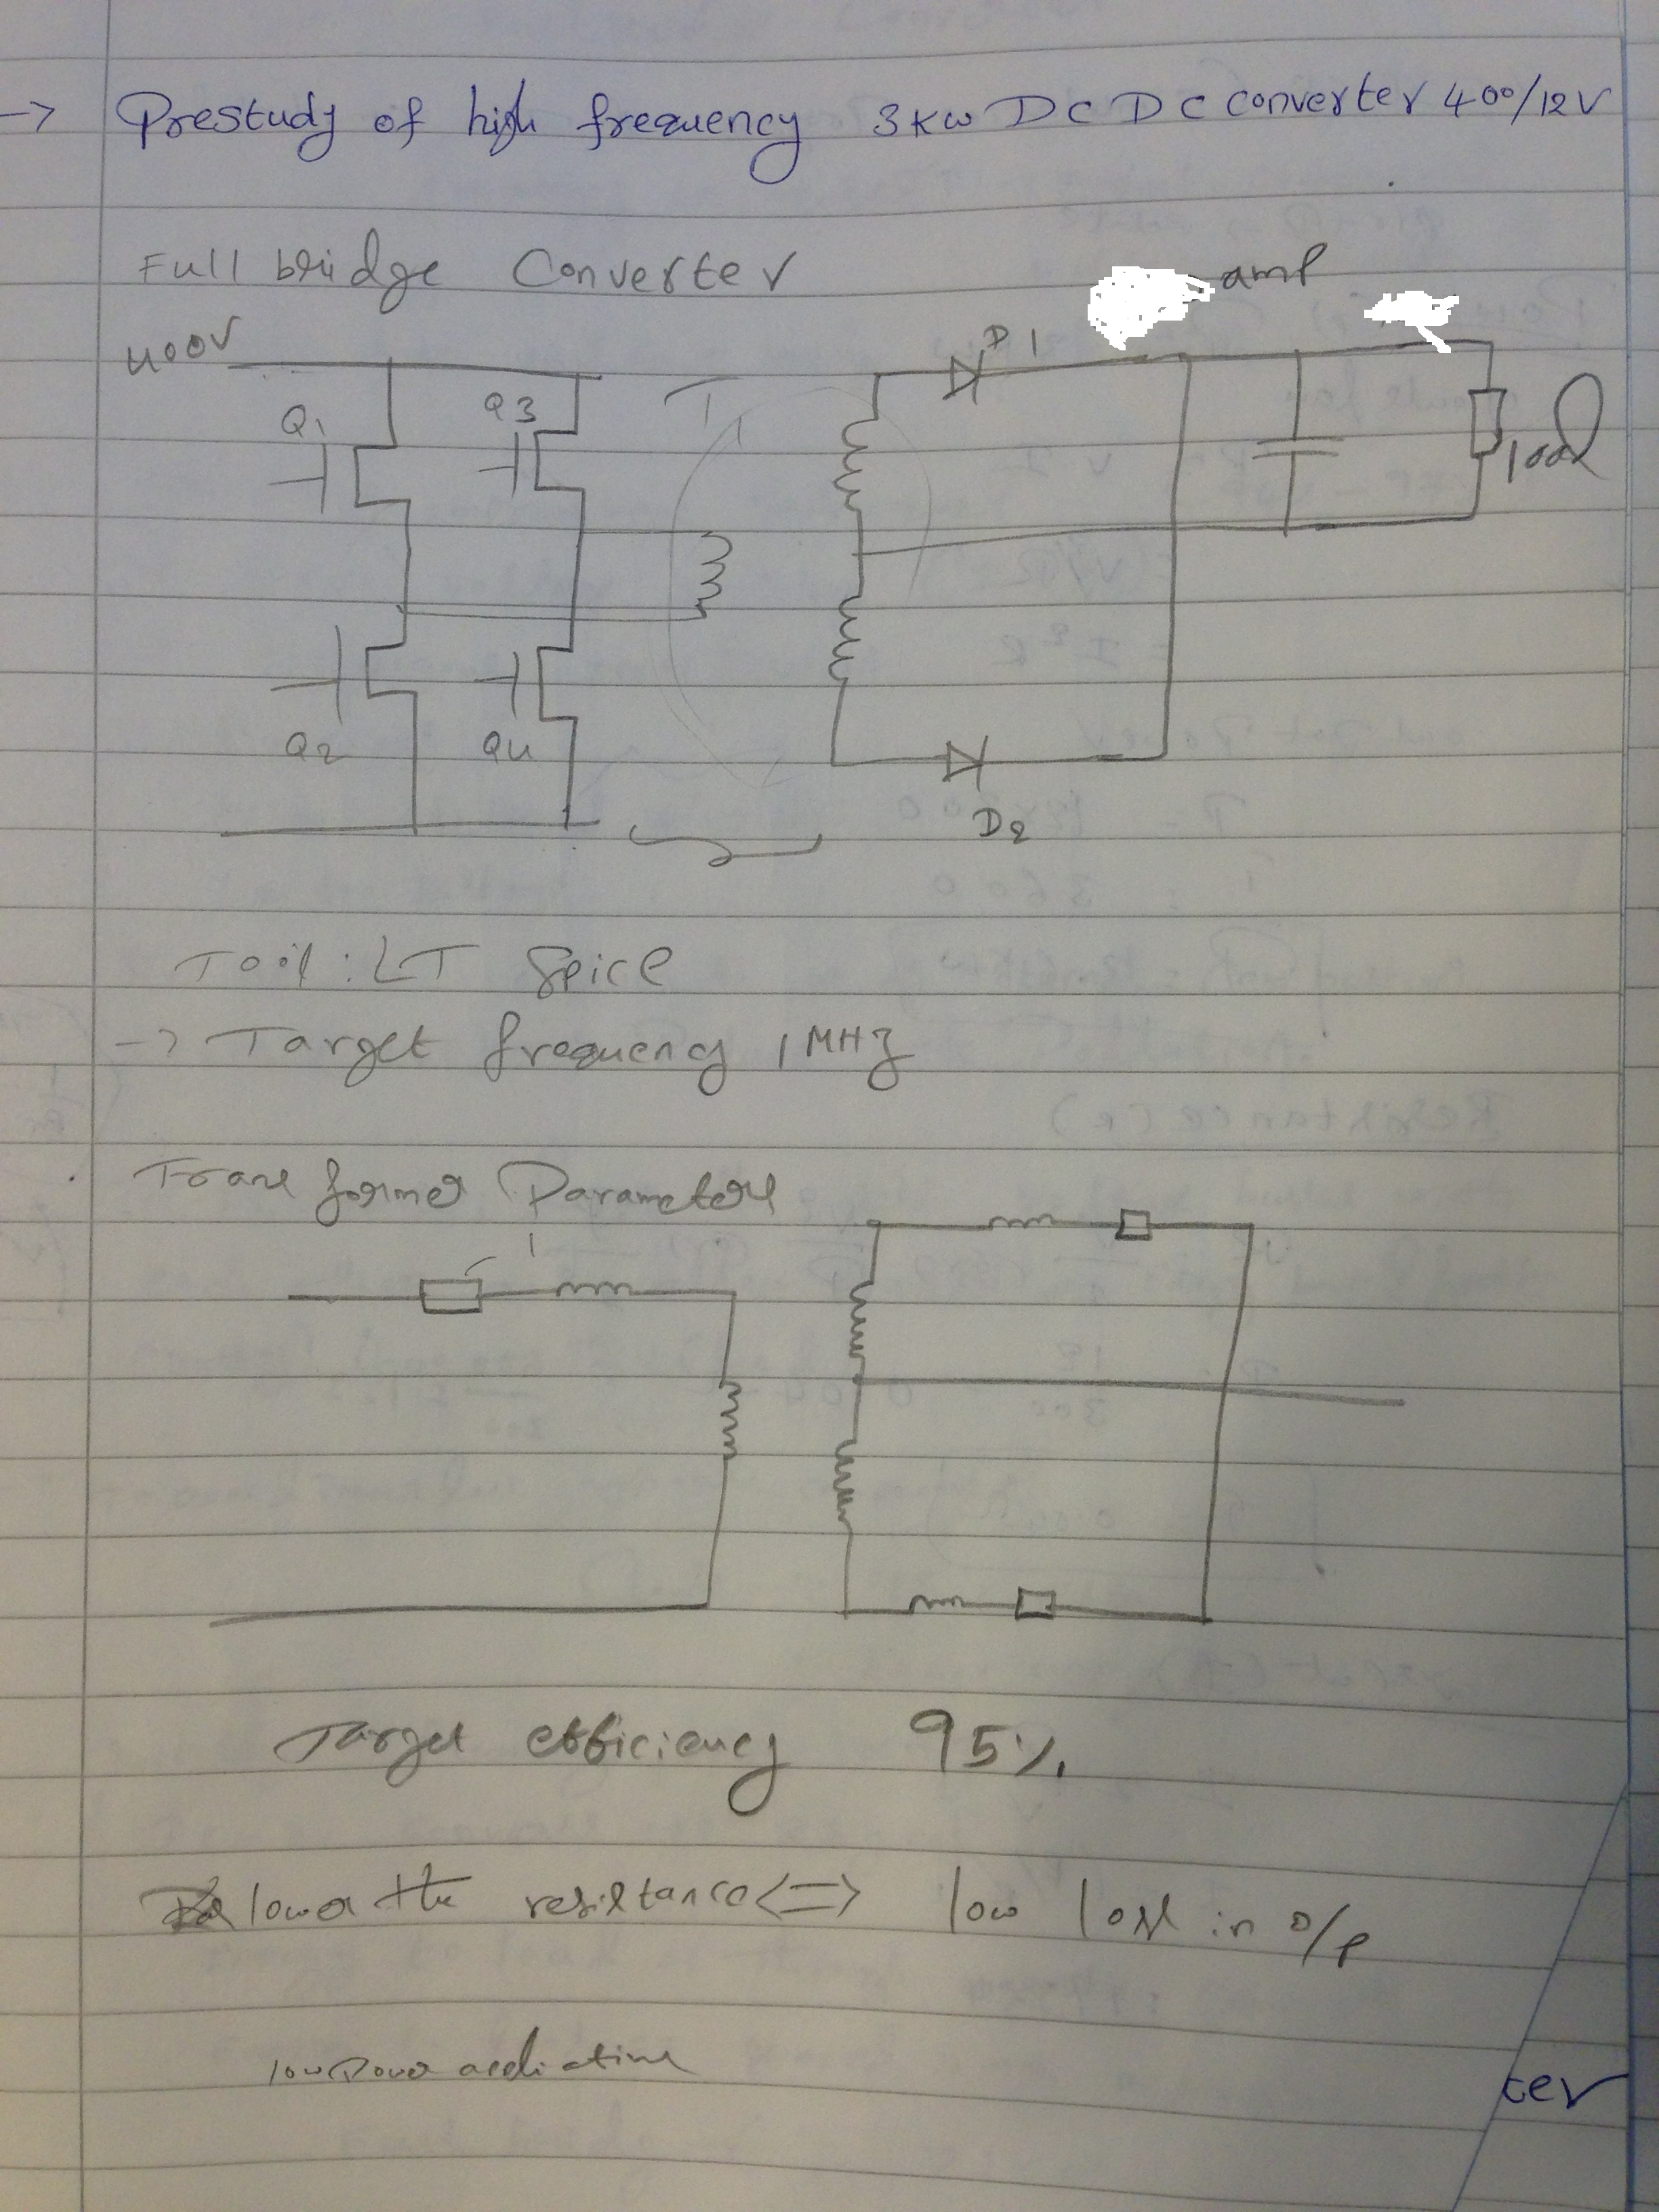 -> Prestudy of high frequency 3KW DC DC converter 400/12V
Full bridge Converter
amp
400V
D1
Q1
Q3
T1
100Ω
Q2
Q4
D2
Tool: LT Spice
-> Target frequency 1MHz
Transformer Parameters
Target efficiency 95%
lower the resistance <=> low loss in o/p
low Power
cer